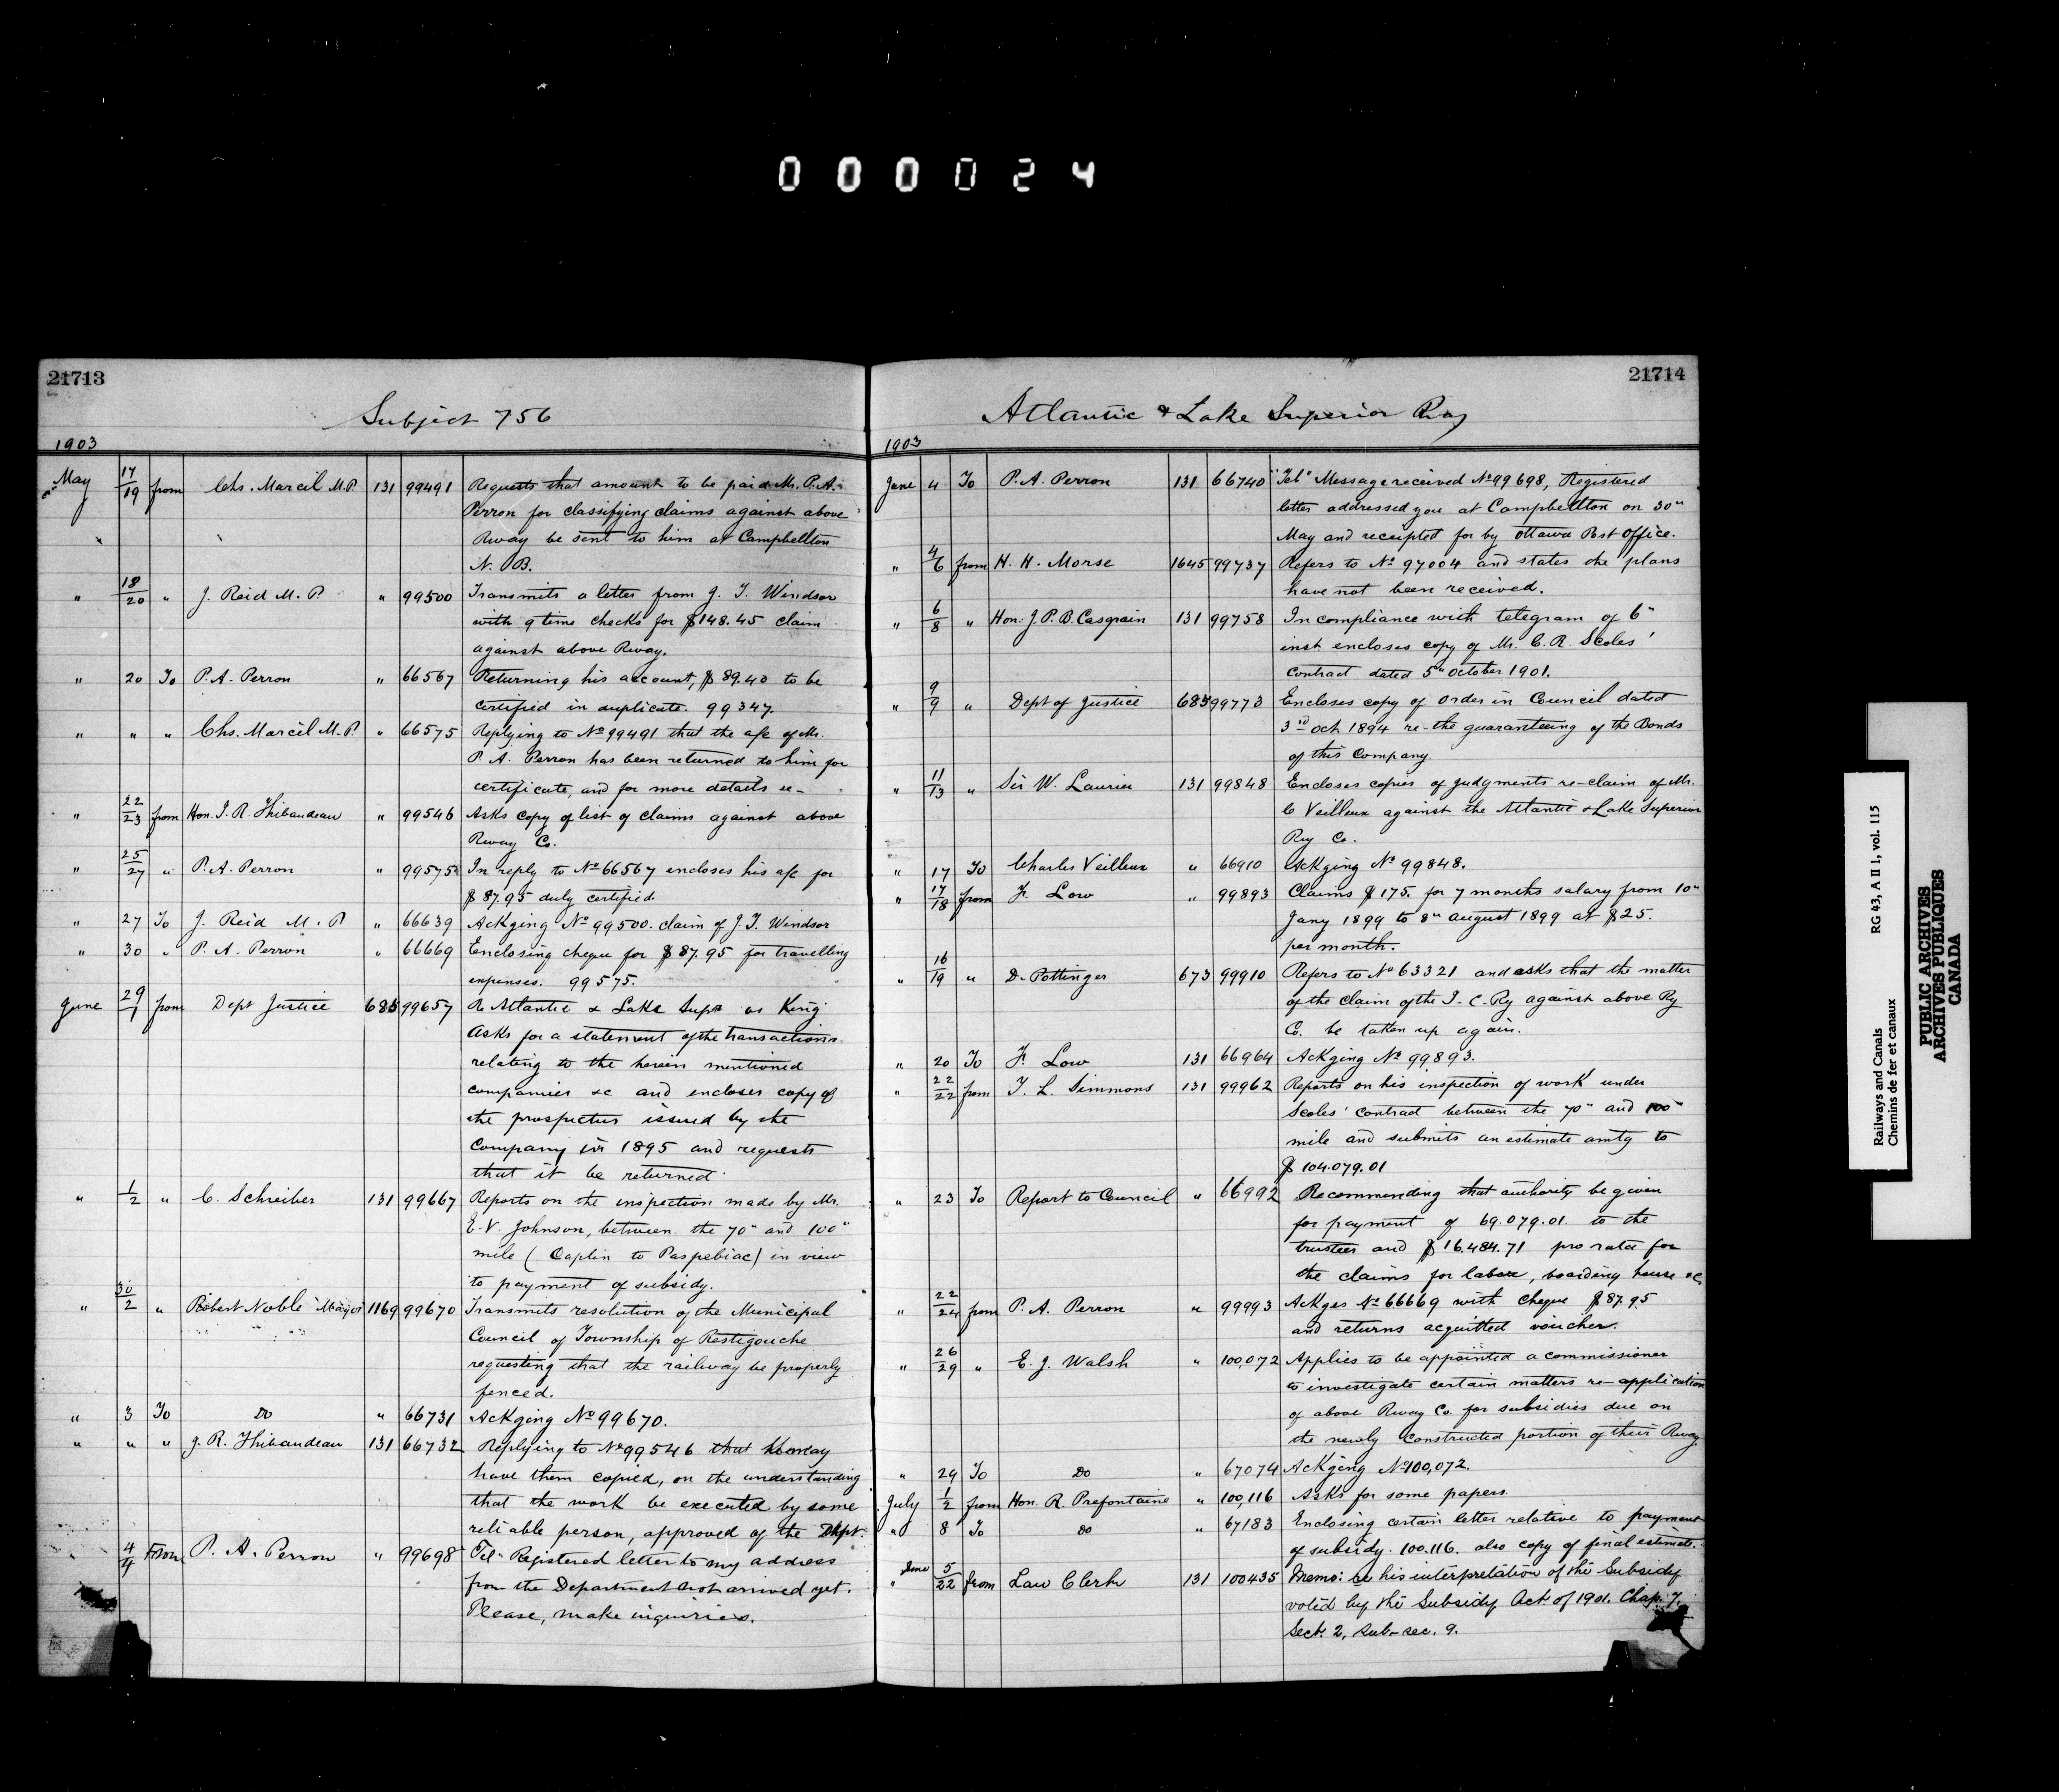 000024
21713
Subject 756
1903
May 17/19 from Chs. Marcil M.P. 131 99491 Requests that amount to be paid Mr. P.A.
Perron for classifying claims against above
Rway be sent to him at Campbellton
N. B.
" 18/20 " J. Reid M. P. " 99500 Transmits a letter from J. T. Windsor
with 9 time checks for $148.45 claim
against above Rway.
" 20 To P. A. Perron " 66567 Returning his account, $89.40 to be
certified in duplicate. 99347.
" " " Chs. Marcil M.P. " 66575 Replying to No 99491 that the a/c of Mr.
P. A. Perron has been returned to him for
certificate, and for more details re-
" 22/23 from Hon. J. R. Thibaudeau " 99546 Asks copy of list of claims against above
Rway Co.
" 25/27 " P. A. Perron " 99575 In reply to No 66567 encloses his a/c for
$87.95 duly certified.
" 27 To J. Reid M. P " 66639 Ackging No 99500. claim of J. T. Windsor
" 30 " P. A. Perron " 66669 Enclosing cheque for $87.95 for travelling
expenses. 99575.
June 29/1 from Dept Justice 685 99657 Re Atlantic & Lake Supr vs King
Asks for a statement of the transactions
relating to the herein mentioned
companies &c and encloses copy of
the prospectus issued by the
Company in 1895 and requests
that it be returned.
" 1/2 " C. Schreiber 131 99667 Reports on the inspection made by Mr.
E. V. Johnson, between the 70" and 100"
mile (Caplin to Paspebiac) in view
to payment of subsidy.
" 30/2 " Robert Noble Mayor 1169 99670 Transmits resolution of the Municipal
Council of Township of Restigouche
requesting that the railway be properly
fenced.
" 3 To Do " 66731 Ackging No 99670.
" " " J. R. Thibaudeau 131 66732 Replying to No 99546 that he may
have them copied, on the understanding
that the work be executed by some
reliable person, approved of the Dept.
4/4 From P. A. Perron " 99698 Tel- Registered letter to my address
from the Department not arrived yet.
Please, make inquiries.
21714
Atlantic & Lake Superior Rway
1903
June 4 To P. A. Perron 131 66740 "Tel" Message received No 99698, Registered
letter addressed you at Campbellton on 30"
May and receipted for by Ottawa Post Office.
" 4/6 from H. H. Morse 1645 99737 Refers to No 97004 and states the plans
have not been received.
" 6/8 " Hon. J. P. B. Casgrain 131 99758 In compliance with telegram of 6"
inst encloses copy of Mr. C. R. Scoles'
contract dated 5th October 1901.
" 9/9 " Dept of Justice 685 99773 Encloses copy of Order in Council dated
3rd Oct. 1894 re-the guaranteeing of the Bonds
of this Company.
" 11/13 " Sir W. Laurier 131 99848 Encloses copies of judgments re-claim of Mr.
C Veilleux against the Atlantic & Lake Superior
Ry Co.
" 17 To Charles Veilleux " 66910 Ackging No 99848.
" 17/18 from F. Low " 99893 Claims $175. for 7 months salary from 10"
Jany 1899 to 8" august 1899 at $25.
per month.
" 16/19 " D. Pottinger 673 99910 Refers to No 63321 and asks that the matter
of the claim of the I. C. Ry against above Ry
Co. be taken up again.
" 20 To F. Low 131 66964 Ackging No 99893.
" 22/22 from T. L. Simmons 131 99962 Reports on his inspection of work under
Scoles' contract between the 70" and 100"
mile and submits an estimate amtg to
$104.079.01
" 23 To Report to Council " 66992 Recommending that authority be given
for payment of 69.079.01 to the
trustees and $16.484.71 pro rata for
the claims for labour, boarding house &c
" 22/24 from P. A. Perron " 99993 Ackges No 66669 with cheque $87.95
and returns acquitted voucher.
" 26/29 " E. J. Walsh " 100,072 Applies to be appointed a commissioner
to investigate certain matters re-application
of above Rway Co. for subsidies due on
the newly constructed portion of their Rway.
" 29 To Do " 67074 Ackging No 100,072.
July 1/2 from Hon. R. Prefontaine " 100,116 Asks for some papers.
" 8 To Do " 67183 Enclosing certain letter relative to payment
of subsidy. 100.116. also copy of final estimate.
" June 5/22 from Law Clerk 131 100435 Memo: re his interpretation of the Subsidy
voted by the Subsidy Act. of 1901. Chap. 7.
Sect. 2, sub-sec. 9.
Railways and Canals RG 43, A II 1, vol. 115
Chemins de fer et canaux
PUBLIC ARCHIVES
ARCHIVES PUBLIQUES
CANADA